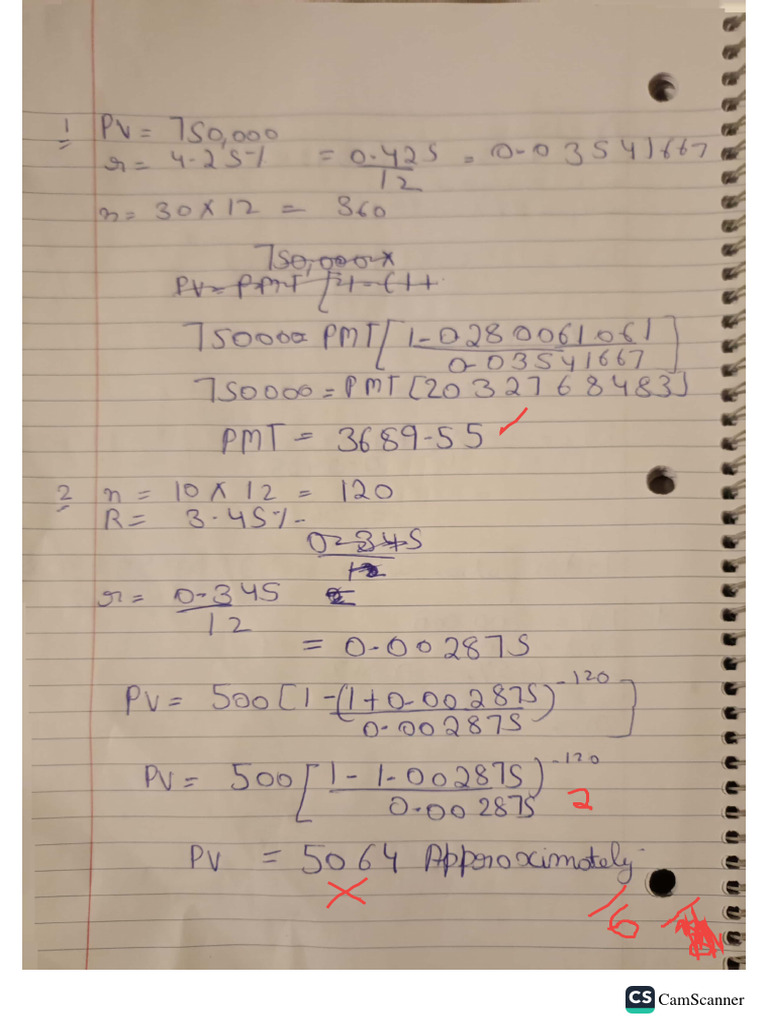 1 PV = 750,000
r = 4.25% = 0.425/12 = 0.03541667
n = 30 × 12 = 360
750,000 ×
PV = PMT [1-(1+
750000= PMT [1-0280061061/0.03541667]
750000 = PMT [2032768483]
PMT = 3689.55 ✓
2 n = 10 × 12 = 120
R = 3.45%
0.345/12
r = 0.345/12
= 0.002875
PV = 500 [1-(1+0.002875)^-120/0.002875]
PV = 500 [1-1.002875)^-120/0.002875] 2
PV = 5064 Apperoximately
×
/6
CS CamScanner